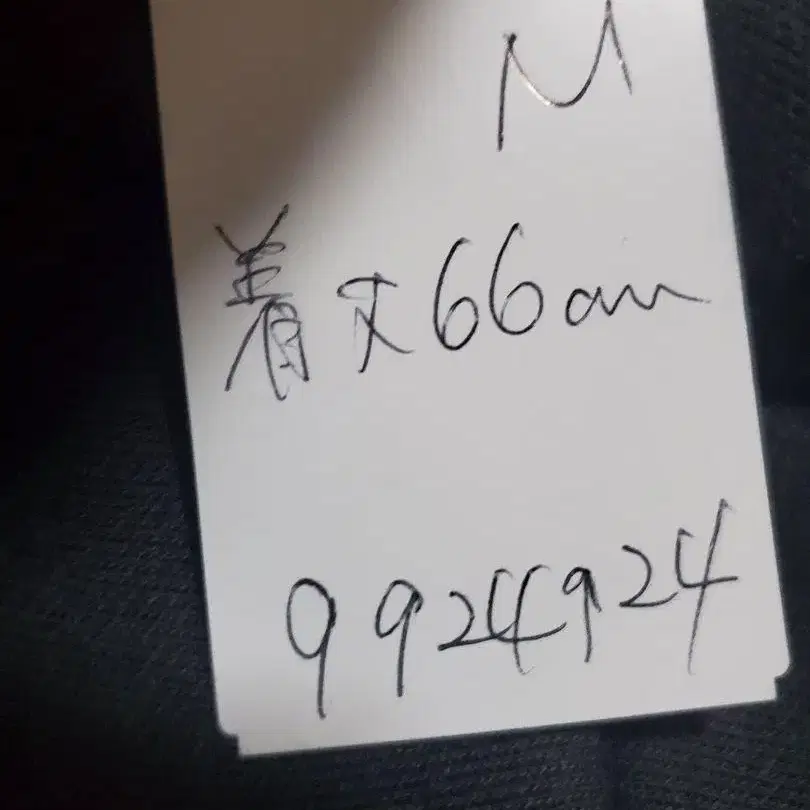 M
着丈66cm
9924924